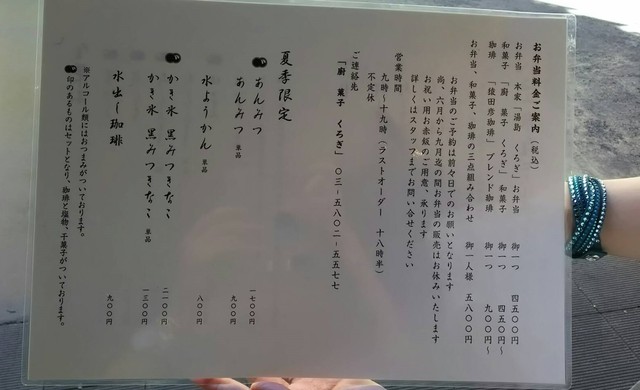 お弁当料金ご案内（税込）
お弁当 本家「湯島 くろぎ」お弁当 御一つ 四五〇〇円
和菓子 「廚 菓子 くろぎ」和菓子 御一つ 四五〇円～
珈琲 「猿田彦珈琲」ブレンド珈琲 御一つ 九〇〇円～
お弁当、和菓子、珈琲の三点組み合わせ 御一人様 五八〇〇円
お弁当のご予約は前々日でのお願いとなります
尚、六月から九月迄の間お弁当の販売はお休みいたします
お祝い用お赤飯のご用意、承ります
詳しくはスタッフまでお問い合せください
営業時間
九時～十九時（ラストオーダー 十八時半）
不定休
ご連絡先
「廚 菓子 くろぎ」〇三‐五八〇二‐五五七七
夏季限定
あんみつ 一七〇〇円
あんみつ 単品 九〇〇円
水ようかん 単品 八〇〇円
かき氷 黒みつきなこ 二一〇〇円
かき氷 黒みつきなこ 単品 一三〇〇円
水出し珈琲 九〇〇円
※アルコール類にはおつまみがついております。
印のあるものはセットとなり、珈琲と塩物、干菓子がついております。